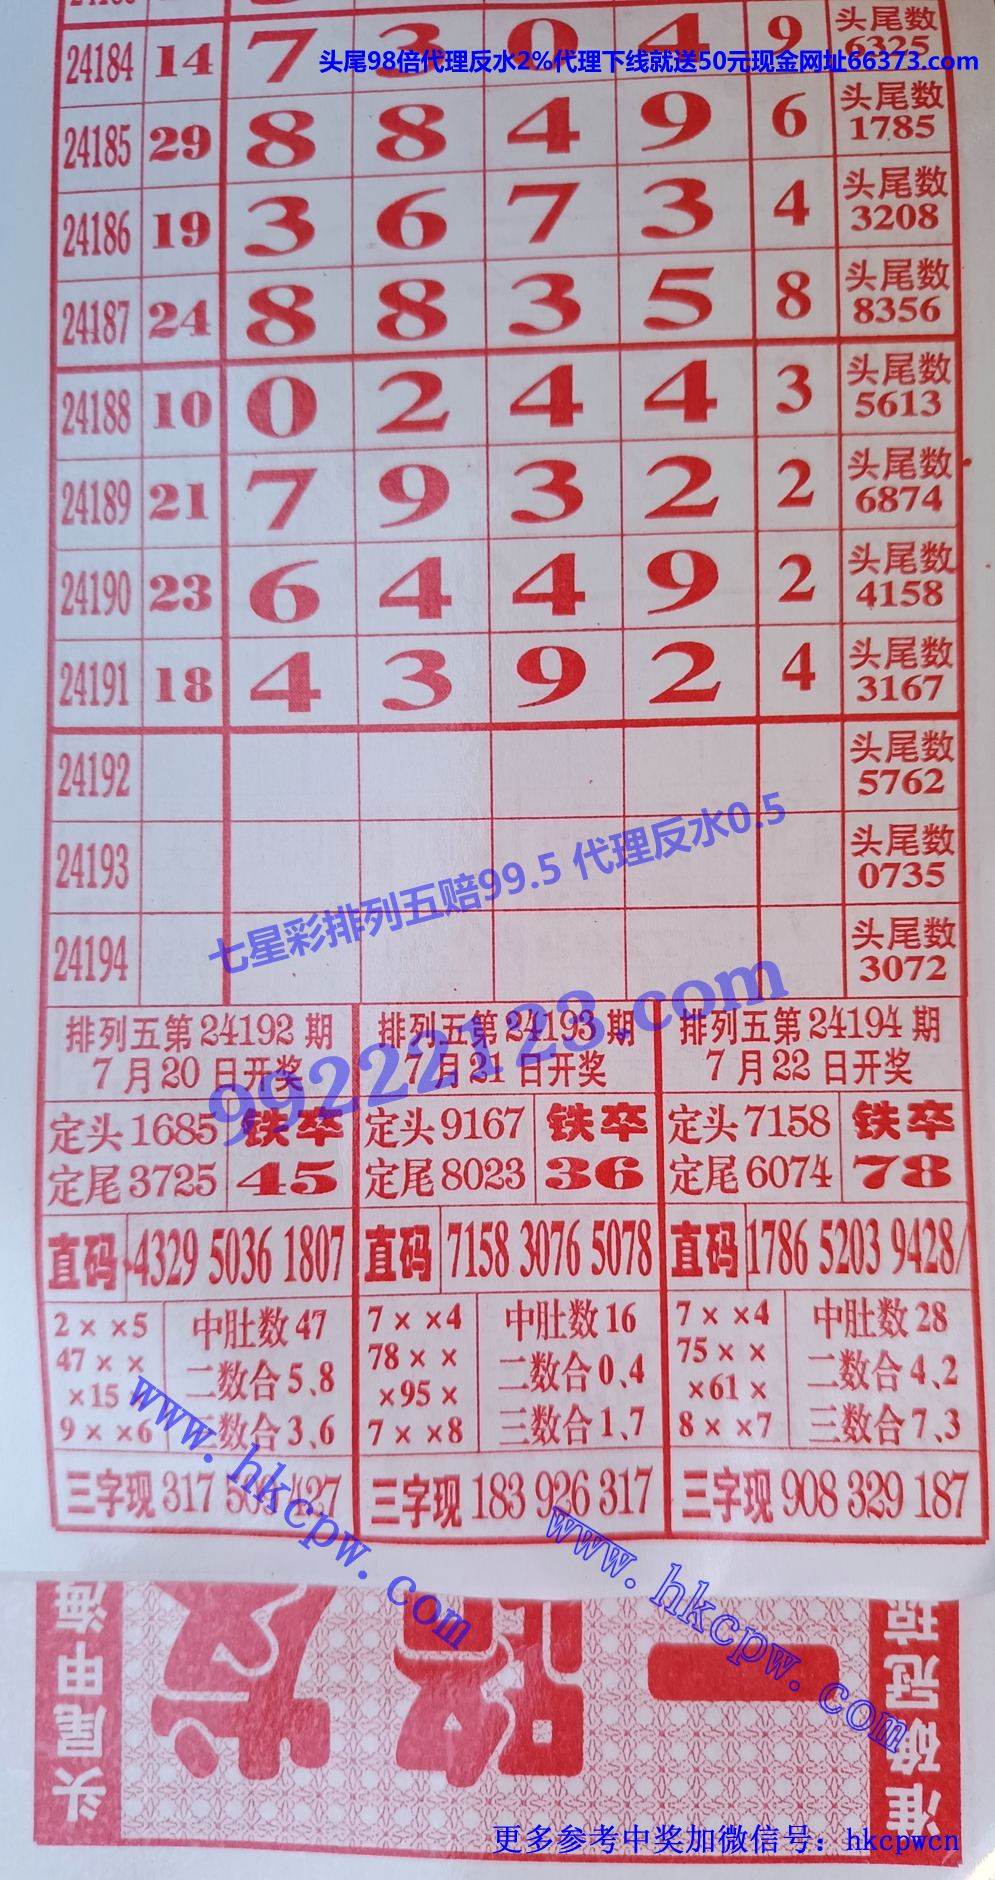 头尾数
24184 14 7 3 0 4 9 6325
头尾98倍代理反水2%代理下线就送50元现金网址66373.com
24185 29 8 8 4 9 6 头尾数 1785
24186 19 3 6 7 3 4 头尾数 3208
24187 24 8 8 3 5 8 头尾数 8356
24188 10 0 2 4 4 3 头尾数 5613
24189 21 7 9 3 2 2 头尾数 6874
24190 23 6 4 4 9 2 头尾数 4158
24191 18 4 3 9 2 4 头尾数 3167
24192 头尾数 5762
24193 头尾数 0735
24194 头尾数 3072
七星彩排列五赔99.5 代理反水0.5
99222123.com
排列五第24192期
7月20日开奖
定头1685 铁卒
定尾3725 45
直码 4329 5036 1807
2××5 中肚数47
47×× 二数合5、8
×15×
9××6 三数合3、6
三字现 317 427
排列五第24193期
7月21日开奖
定头9167 铁卒
定尾8023 36
直码 7158 3076 5078
7××4 中肚数16
78×× 二数合0、4
×95×
7××8 三数合1、7
三字现 183 926 317
排列五第24194期
7月22日开奖
定头7158 铁卒
定尾6074 78
直码 1786 5203 9428
7××4 中肚数28
75×× 二数合4、2
×61×
8××7 三数合7、3
三字现 908 329 187
www.hkcpw.com
www.hkcpw.com
头尾甲海
一路发
准确冠琼
更多参考中奖加微信号：hkcpwcn